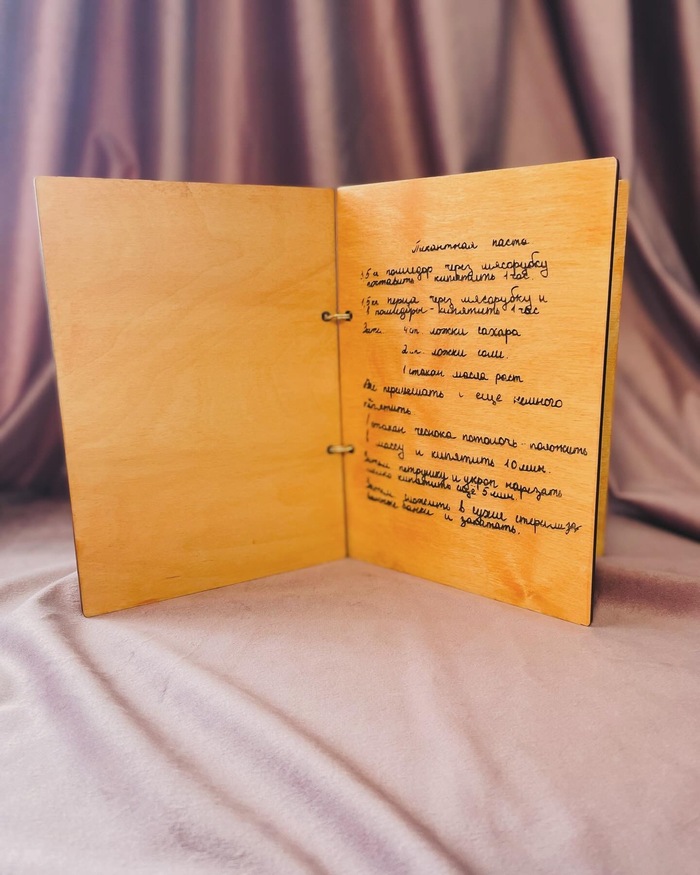 Пикантная паста
1,5 л помидор через мясорубку
поставить кипятить 1 час
1,5 кг перца через мясорубку и
в помидоры - кипятить 1 час
4 ст. ложки сахара
2 ст. ложки соли.
1 стакан масла раст
Всё перемешать и еще немного
кипятить
1 стакан чеснока потолочь - положить
в массу и кипятить 10 мин.
Затем петрушку и укроп нарезать
мелко кипятить ещё 5 мин.
Затем разложить в сухие стерилизо-
ванные банки и закатать.